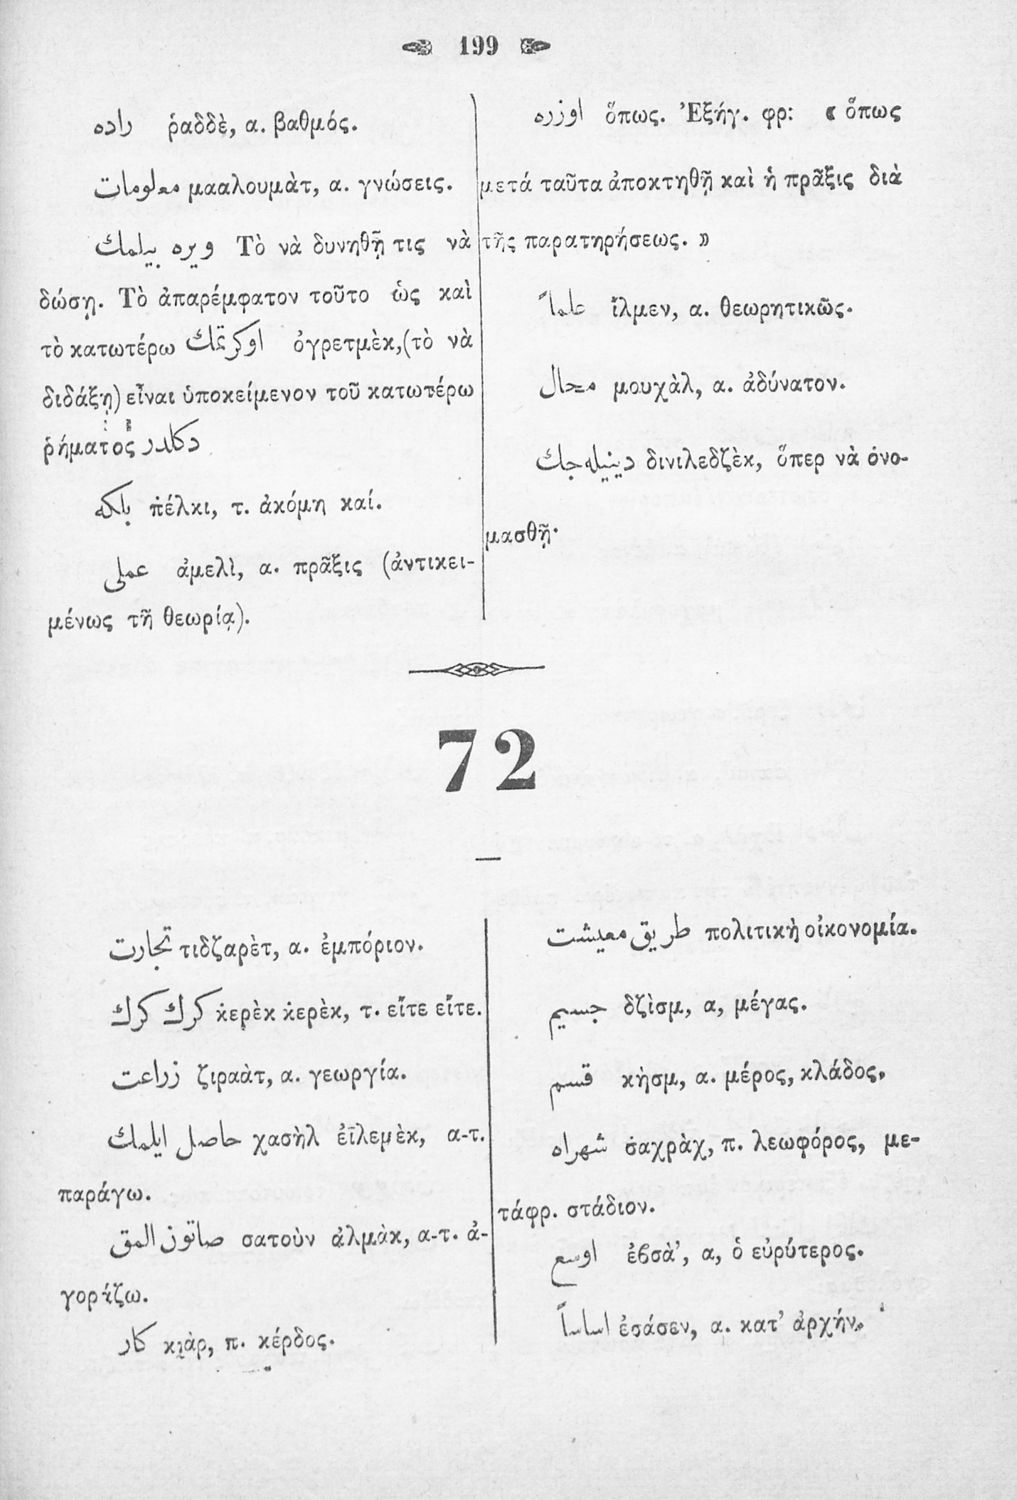 199
راده ῥαδδὲ, α. βαθμός.
معلومات μααλουμὰτ, α. γνώσεις.
ويره بيلمك Τὸ νὰ δυνηθῇ τις νὰ
δώσῃ. Τὸ ἀπαρέμφατον τοῦτο ὡς καὶ
τὸ κατωτέρω اوكرتمك ὀγρετμὲκ,(τὸ νὰ
διδάξῃ) εἶναι ὑποκείμενον τοῦ κατωτέρω
ῥήματος دكلدر
بلكه πέλκι, τ. ἀκόμη καί.
عملى ἀμελὶ, α. πρᾶξις (ἀντικει-
μένως τῇ θεωρίᾳ).
اوزره ὅπως. Ἐξήγ. φρ: « ὅπως
μετά ταῦτα ἀποκτηθῇ καὶ ἡ πρᾶξις διὰ
τῆς παρατηρήσεως. »
علماً ἴλμεν, α. θεωρητικῶς.
محال μουχὰλ, α. ἀδύνατον.
دينيله جك δινιλεδζὲκ, ὅπερ νὰ ὀνο-
μασθῇ·
72
تجارت τιδζαρὲτ, α. ἐμπόριον.
كرك كرك κερὲκ κερὲκ, τ. εἴτε εἴτε.
زراعت ζιραὰτ, α. γεωργία.
حاصل ايلمك χασὴλ ἐϊλεμὲκ, α-τ.
παράγω.
صاتون المق σατοὺν ἀλμὰκ, α-τ. ἀ-
γοράζω.
كار κιὰρ, π. κέρδος.
طريق معيشت πολιτικὴ οἰκονομία.
جسيم δζὶσμ, α, μέγας.
قسم κὴσμ, α. μέρος, κλάδος.
شهراه σαχρὰχ, π. λεωφόρος, με-
τάφρ. στάδιον.
اوسع ἐβσὰ’, α, ὁ εὐρύτερος.
اساساً ἐσάσεν, α. κατ’ ἀρχήν.